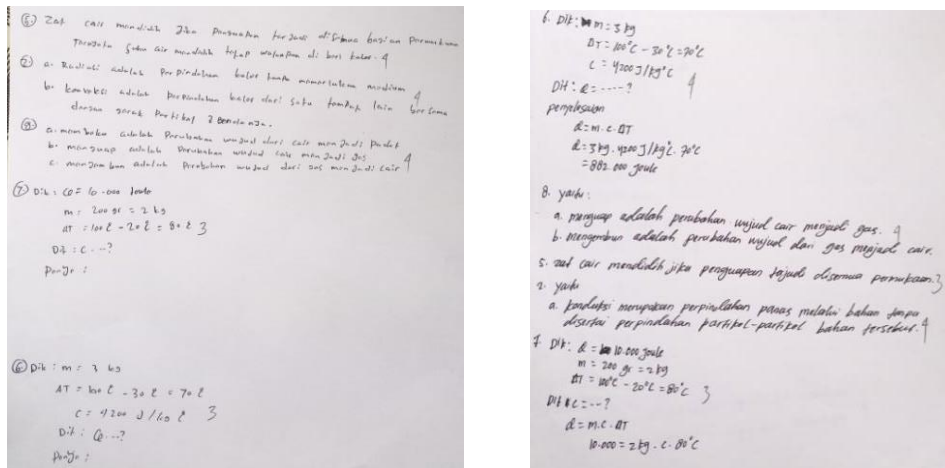 ⑤ Zat cair mendidih jika penguapan terjadi di semua bagian permukaan
suhu air mendidih tetap walaupun di beri kalor. 4
② a. Radiasi adalah Perpindahan kalor tanpa memerlukan medium
b. konveksi adalah perpindahan kalor dari satu tempat lain bersama
dengan gerak Partikel 2 bendanya. 4
⑧ a. membeku adalah Perubahan wujud dari cair menjadi Padat
b. menguap adalah Perubahan wujud cair menjadi gas
c. mengembun adalah Perubahan wujud dari gas menjadi cair 4
⑦ Dik : Q = 10.000 Joule
m : 200 gr = 2 kg
ΔT = 100 C - 20 C = 80 C 3
Dit : C ...?
Penye :
⑥ Dik : m = 3 kg
ΔT = 100 C - 30 C = 70 C
C = 4200 J / kg C 3
Dit : Q ...?
Penye :
6. Dik : m = 3 kg
ΔT = 100°C - 30°C = 70°C
C = 4200 J/kg°C
DH : Q = .....? 4
penyelesaian
Q = m . c . ΔT
Q = 3 kg . 4200 J/kg°C . 70°C
= 882.000 joule
8. yaitu :
a. menguap adalah perubahan wujud cair menjadi gas. 4
b. mengembun adalah perubahan wujud dari gas menjadi cair.
5. zat cair mendidih jika penguapan tejadi disemua permukaan. 3
2. yaitu
a. konduksi merupakan perpindahan panas melalui bahan tanpa
disertai perpindahan partikel-partikel bahan tersebut. 4
7. Dik : Q = 10.000 joule
m = 200 gr = 2 kg
ΔT = 100°C - 20°C = 80°C 3
Dit C = --?
Q = m . c . ΔT
10.000 = 2 kg . c . 80°C